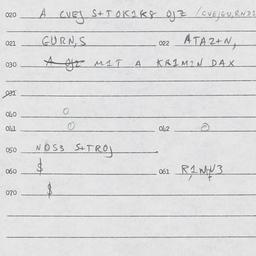 020 A CVEJ S+TOK1K8 OJZ /CVEJGU,RND1
021 GURN,S 022 ATAZ+N,
030 M1T A KR1M1N DAX
031
040
041 042
050 NOS3 S+TROJ
060 $ 061 R1N+N3
070 $